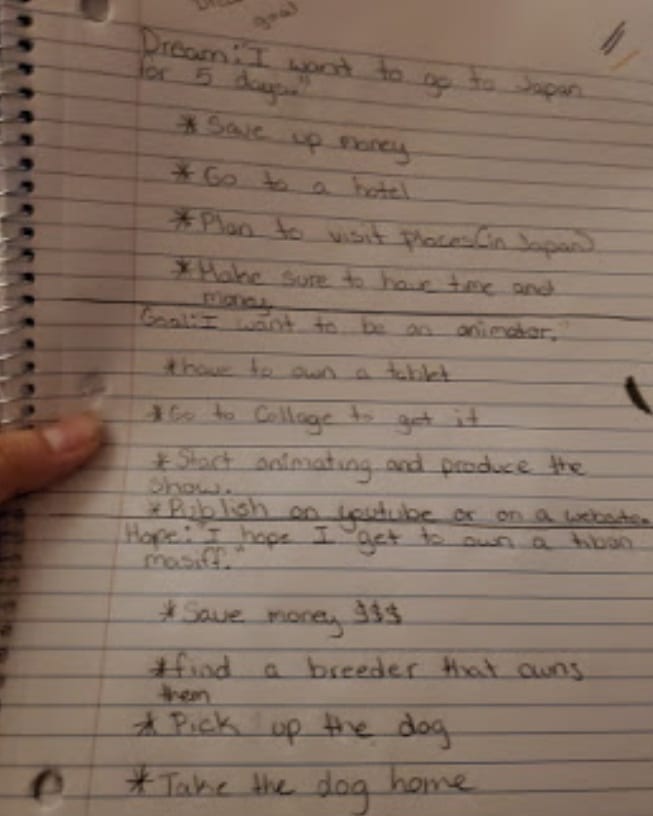 goal
Dream: "I want to go to Japan
for 5 days."
* Save up money
* Go to a hotel
* Plan to visit places (in Japan)
* Make sure to have time and
money
Goal: I want to be an animator."
* have to own a tablet
* Go to Collage to get it
* Start animating and produce the
show.
* Publish on youtube or on a website.
Hope: I hope I get to own a tiban
masiff."
* Save money $$$
* find a breeder that owns
them
* Pick up the dog
* Take the dog home